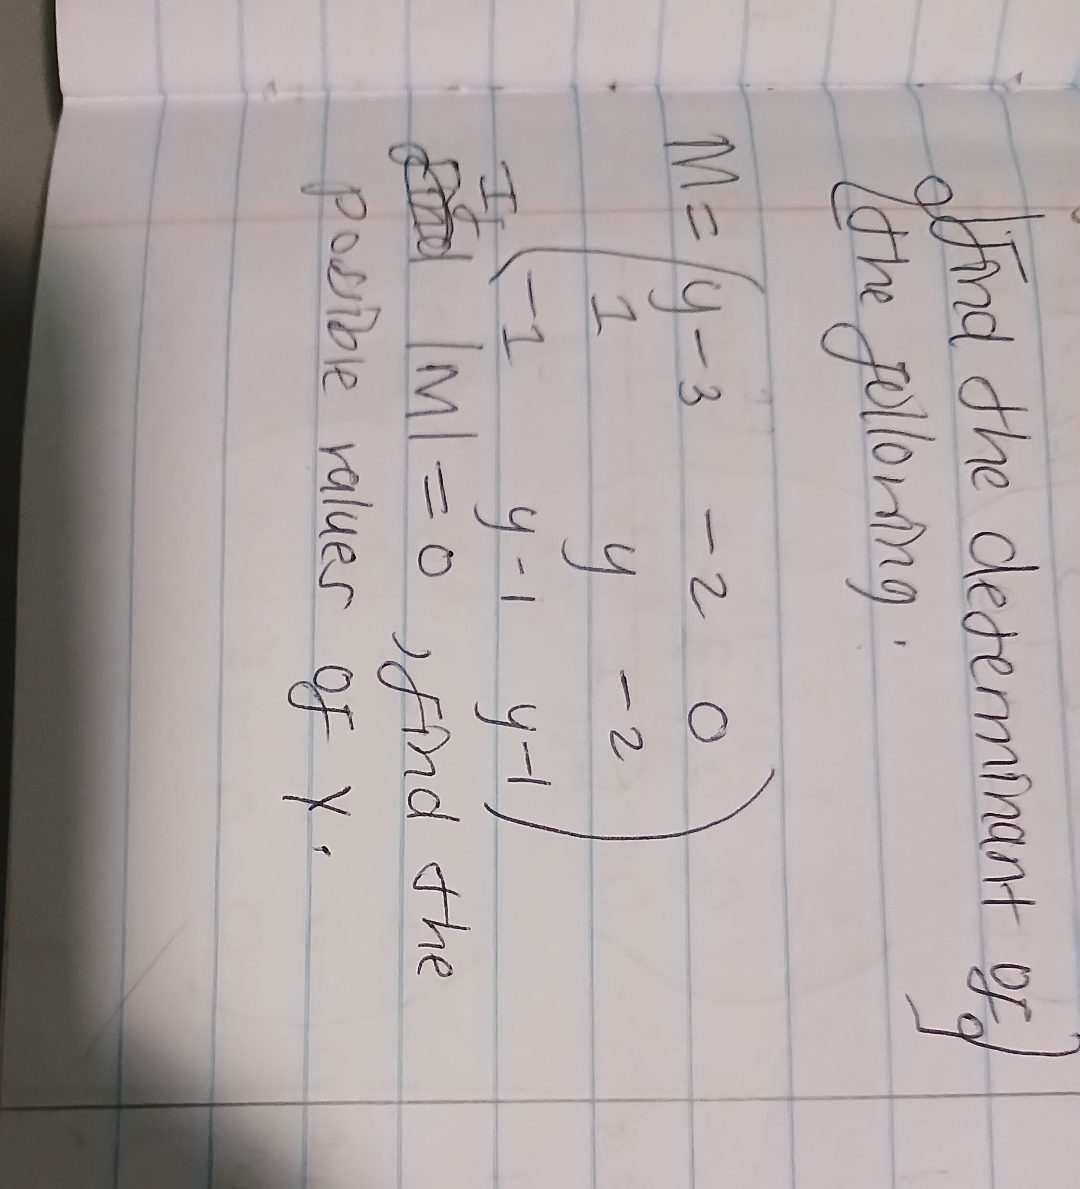 Find the determinant of
the following.
M = ( y-3 -2 0
1 y -2
-1 y-1 y-1 )
If |M| = 0, find the
possible values of y.